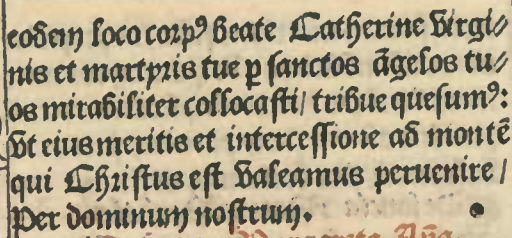 eodem loco corpꝰ beate Catherine virgi⸗
nis et martyris tue p sanctos āgelos tu⸗
os mirabiliter collocasti / tribue quesumꝰ:
vt eius meritis et intercessione ad montē
qui Christus est valeamus peruenire /
Per dominum nostrum.